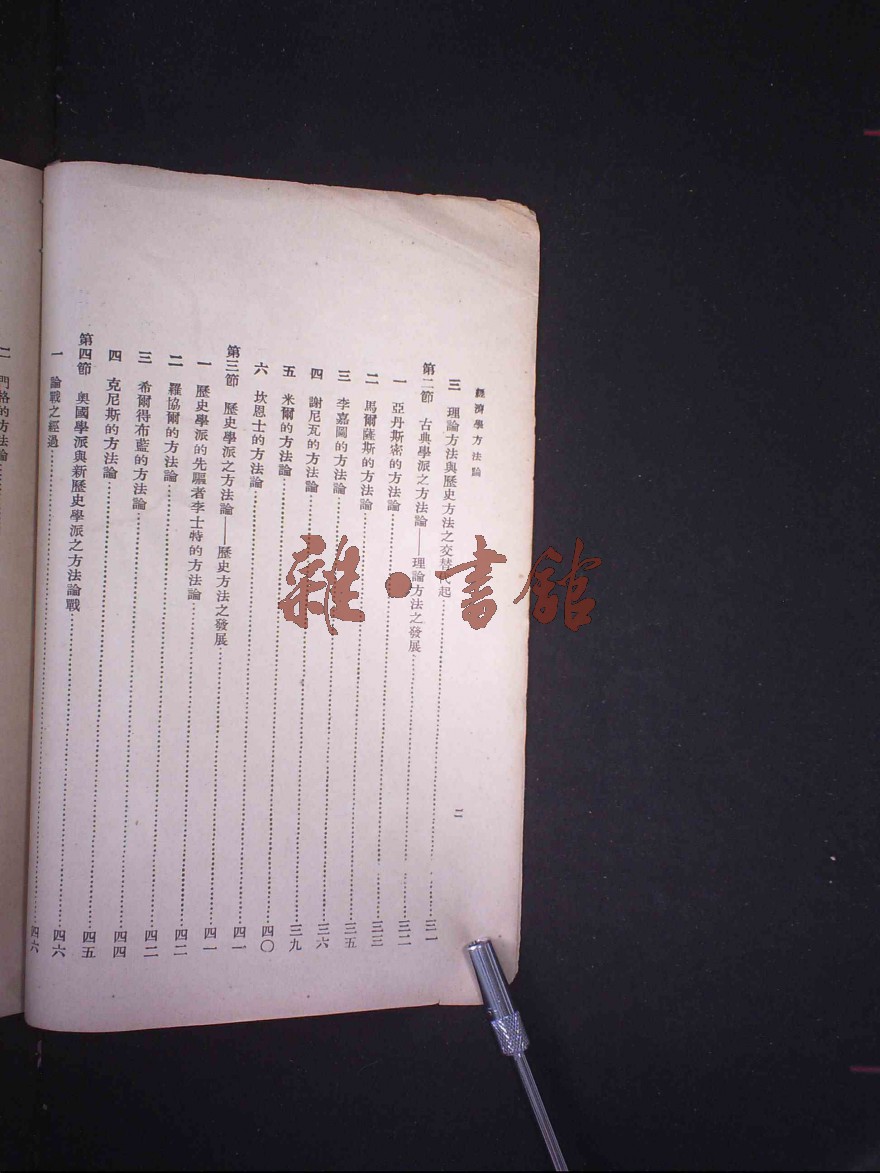 經濟學方法論
二
三 理論方法與歷史方法之交替代起……三一
第二節 古典學派之方法論——理論方法之發展……三二
一 亞丹斯密的方法論……三三
二 馬爾薩斯的方法論……三五
三 李嘉圖的方法論……三六
四 謝尼瓦的方法論……三九
五 米爾的方法論……四〇
六 坎恩士的方法論……四一
第三節 歷史學派之方法論——歷史方法之發展……四一
一 歷史學派的先驅者李士特的方法論……四二
二 羅協爾的方法論……四二
三 希爾得布藍的方法論……四四
四 克尼斯的方法論……四五
第四節 奧國學派與新歷史學派之方法論戰……四六
一 論戰之經過……四六
二 門格的方法論……
雜·書館